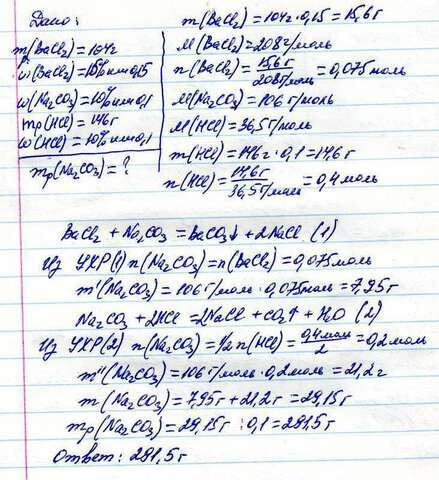 Дано:
mр(BaCl₂)=104г
ω(BaCl₂)=15% или 0,15
ω(Na₂CO₃)=10% или 0,1
mр(HCl)=146г
ω(HCl)=10% или 0,1
mр(Na₂CO₃)=?
m(BaCl₂)=104г·0,15=15,6г
M(BaCl₂)=208г/моль
n(BaCl₂)=15,6г/208г/моль=0,075моль
M(Na₂CO₃)=106г/моль
M(HCl)=36,5г/моль
m(HCl)=146г·0,1=14,6г
n(HCl)=14,6г/36,5г/моль=0,4моль
BaCl₂+Na₂CO₃=BaCO₃↓+2NaCl (1)
Из УХР(1) n(Na₂CO₃)=n(BaCl₂)=0,075моль
m'(Na₂CO₃)=106г/моль·0,075моль=7,95г
Na₂CO₃+2HCl=2NaCl+CO₂↑+H₂O (2)
Из УХР(2) n(Na₂CO₃)=1/2n(HCl)=0,4моль/2=0,2моль
m''(Na₂CO₃)=106г/моль·0,2моль=21,2г
m(Na₂CO₃)=7,95г+21,2г=29,15г
mр(Na₂CO₃)=29,15г:0,1=291,5г
Ответ: 291,5г